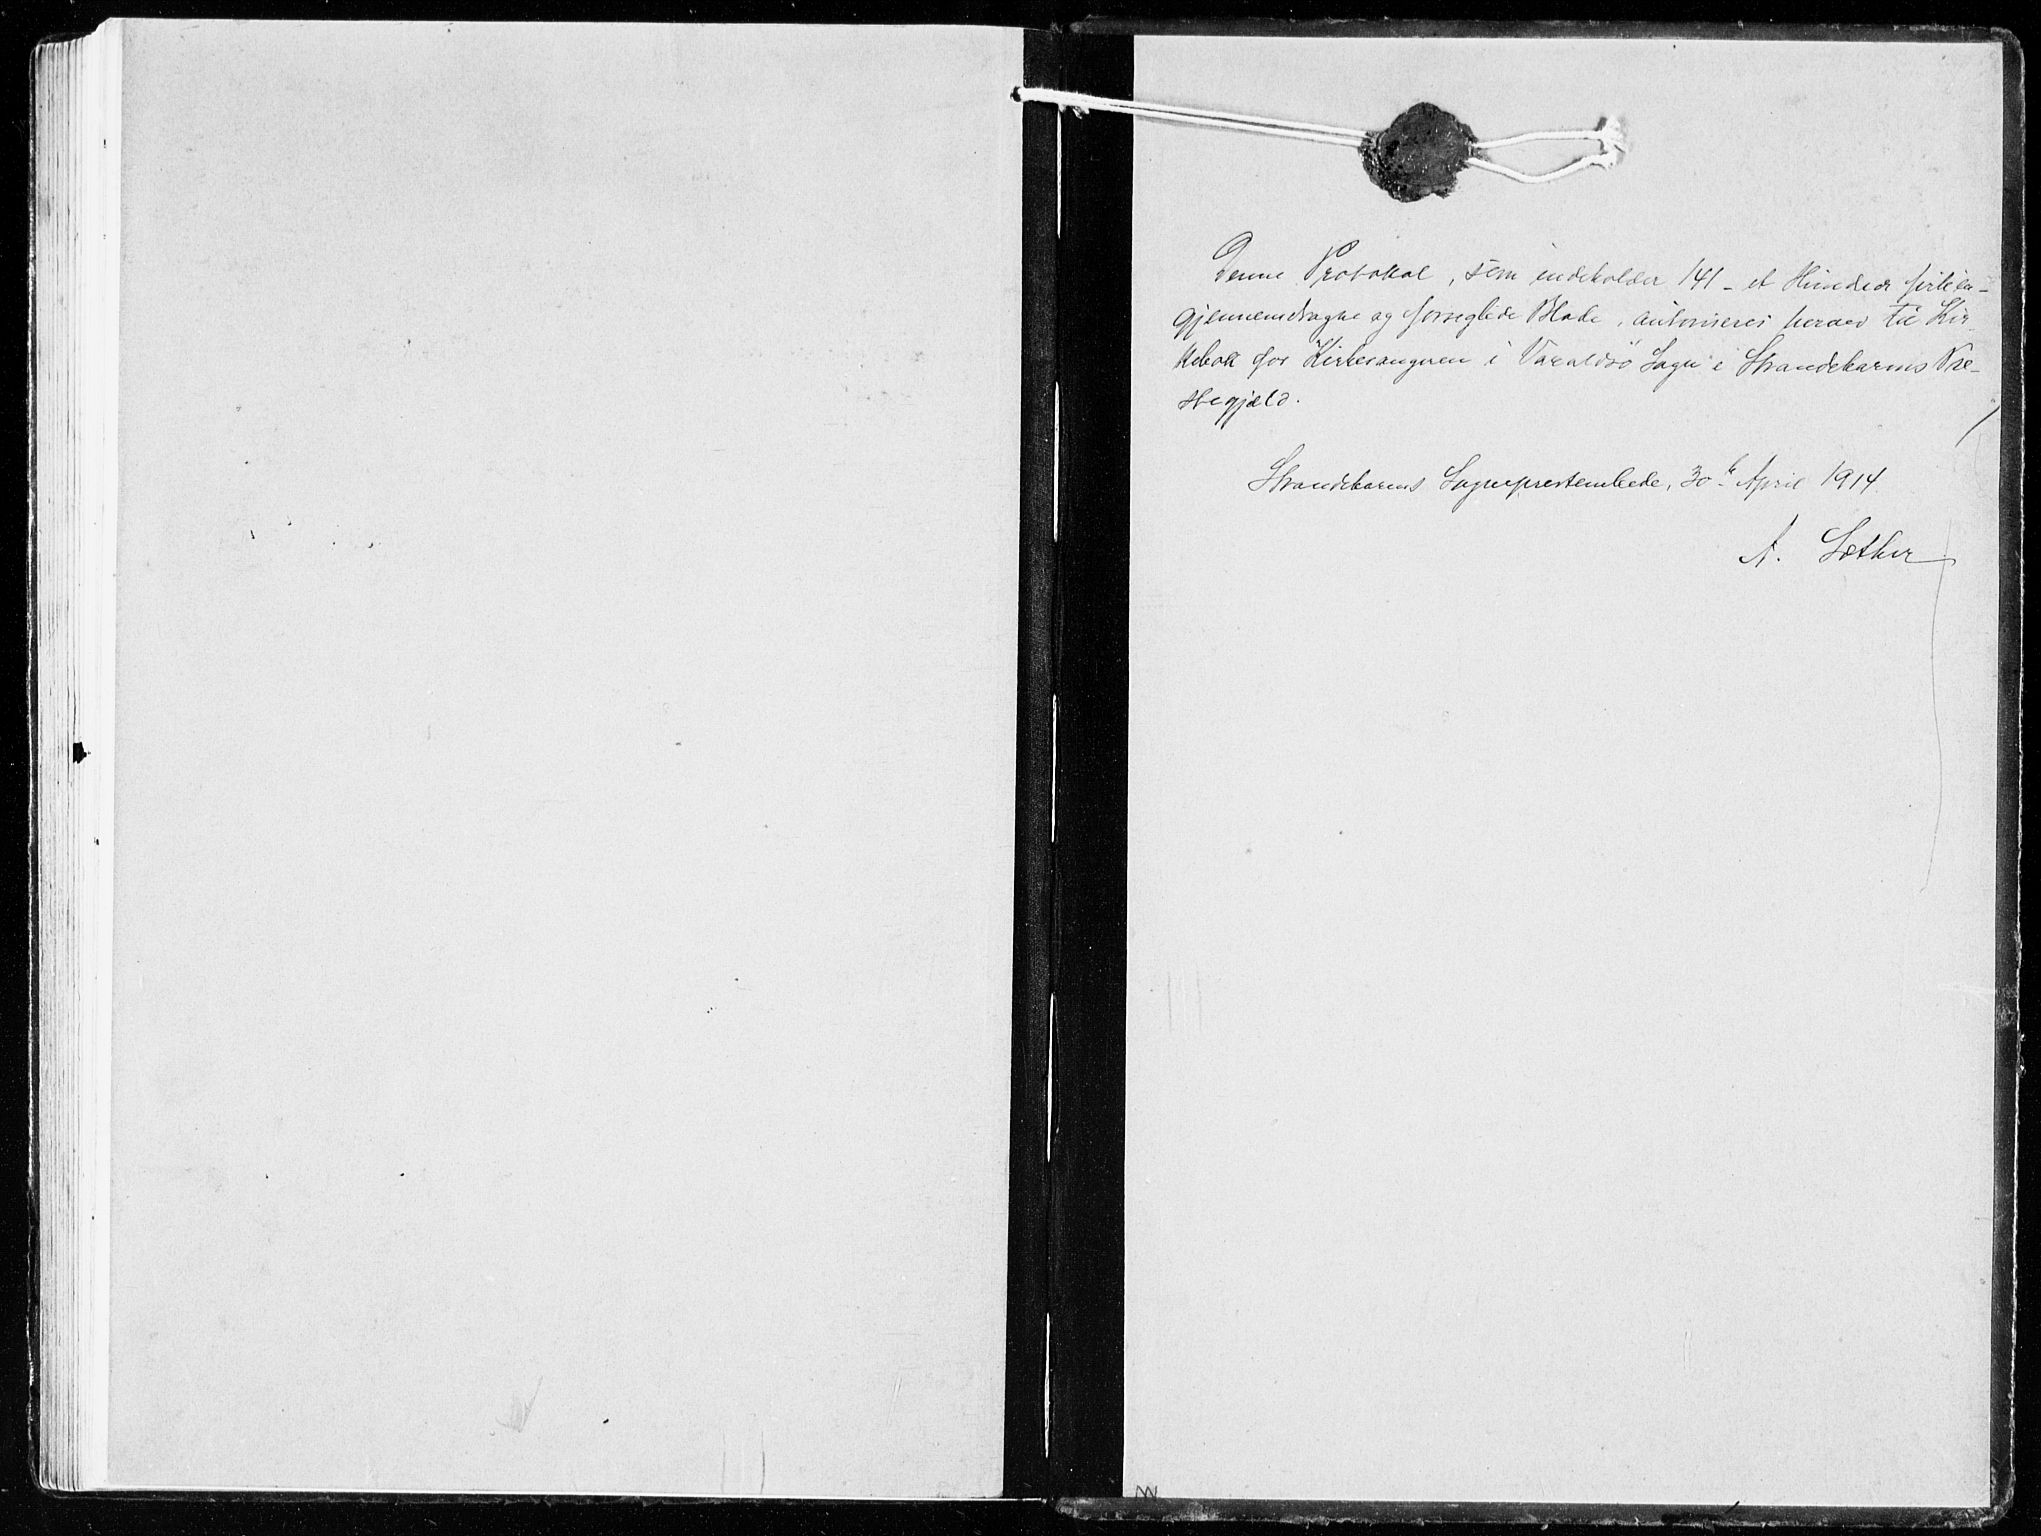 Denne Protokol, som indeholder 141 - et Hundrede firtien -
gjennemdragne og forseglede Blade, autoriseres herved til Kir-
kebok for Kirkesangeren i Varaldsö Sogn i Strandebarms Præ-
stegjæld.
Strandebarms Sogneprestembede, 30te April 1914.
A. Sæther